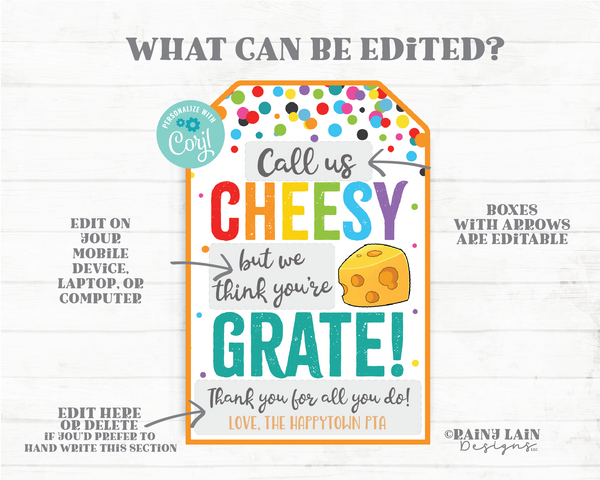 WHAT CAN BE EDITED?
PERSONALIZE WITH
Corjl
Call us
CHEESY
but we
think you're
GRATE!
Thank you for all you do!
LOVE, THE HAPPYTOWN PTA
EDIT ON
YOUR
MOBILE
DEVICE,
LAPTOP, OR
COMPUTER
BOXES
WITH ARROWS
ARE EDITABLE
EDIT HERE
OR DELETE
IF YOU'D PREFER TO
HAND WRITE THIS SECTION
©RAINY LAIN
Designs LLC